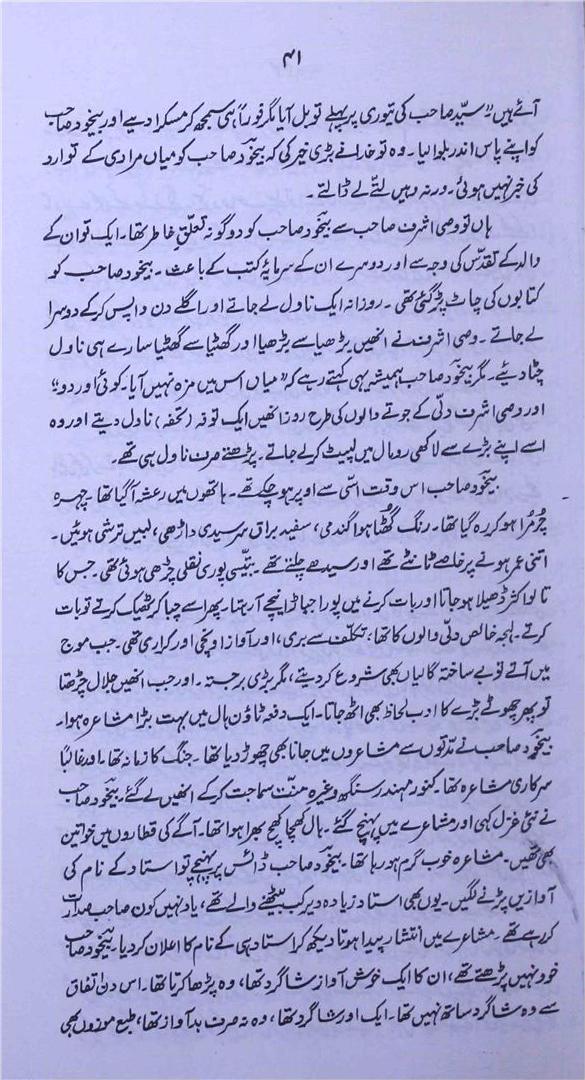 ۴۱
آئے ہیں۔“ سیّد صاحب کی تیوری پر پہلے تو بل آیا مگر فوراً ہی سمجھ کر مسکرا دیے اور بیخود صاحب
کو اپنے پاس اندر بلوا لیا۔ وہ تو خدا نے بڑی خیر کی کہ بیخود صاحب کو میاں مرادی کے توارد
کی خبر نہیں ہوئی۔ ورنہ وہیں لتّے لے ڈالتے۔
ہاں تو وصی اشرف صاحب سے بیخود صاحب کو دوگونہ تعلّقِ خاطر تھا۔ ایک تو ان کے
والد کے تقدّس کی وجہ سے اور دوسرے ان کے سرمایۂ کتب کے باعث۔ بیخود صاحب کو
کتابوں کی چاٹ پڑ گئی تھی۔ روزانہ ایک ناول لے جاتے اور اگلے دن واپس کر کے دوسرا
لے جاتے۔ وصی اشرف نے انھیں بڑھیا سے بڑھیا اور گھٹیا سے گھٹیا سارے ہی ناول
چٹا دیئے۔ مگر بیخود صاحب ہمیشہ یہی کہتے رہے کہ ”میاں اس میں مزہ نہیں آیا۔ کوئی اور دو“
اور وصی اشرف دلّی کے جوتے والوں کی طرح روز انھیں ایک توفہ (تحفہ) ناول دیتے اور وہ
اسے اپنے بڑے سے لاکھی رومال میں لپیٹ کر لے جاتے۔ پڑھتے صرف ناول ہی تھے۔
بیخود صاحب اس وقت اسّی سے اوپر ہو چکے تھے۔ ہاتھوں میں رعشہ آ گیا تھا۔ چہرہ
چُرمُرا ہو کر رہ گیا تھا۔ رنگ گُھٹا ہوا گندمی، سفید براق سر سیدی داڑھی، لبیں ترشی ہوئیں۔
اتنی عمر ہونے پر خاصے ٹانٹے تھے اور سیدھے چلتے تھے۔ بتّیسی پوری نقلی چڑھی ہوئی تھی۔ جس کا
تالو اکثر ڈھیلا ہو جاتا اور بات کرنے میں پورا جبڑا نیچے آ رہتا۔ پھر اسے چبا کر ٹھیک کرتے تو بات
کرتے۔ لہجہ خالص دلّی والوں کا تھا؛ تکلّف سے بری، اور آواز اونچی اور کراری تھی۔ جب موج
میں آتے تو بے ساختہ گالیاں بھی شروع کر دیتے، مگر بڑی برجستہ۔ اور جب انھیں جلال چڑھتا
تو پھر چھوٹے بڑے کا ادب لحاظ بھی اٹھ جاتا۔ ایک دفعہ ٹاؤن ہال میں بہت بڑا مشاعرہ ہوا۔
بیخود صاحب نے مدّتوں سے مشاعروں میں جانا بھی چھوڑ دیا تھا۔ جنگ کا زمانہ تھا۔ اور غالباً
سرکاری مشاعرہ تھا۔ کنور مہندر سنگھ وغیرہ منّت سماجت کر کے انھیں لے گئے۔ بیخود صاحب
نے نئی غزل کہی اور مشاعرے میں پہنچ گئے۔ ہال کھچا کھچ بھرا ہوا تھا۔ آگے کی قطاروں میں خواتین
بھی تھیں۔ مشاعرہ خوب گرم ہو رہا تھا۔ بیخود صاحب ڈائس پر پہنچے تو استاد کے نام کی
آوازیں پڑنے لگیں۔ یوں بھی استاد زیادہ دیر کب بیٹھنے والے تھے، یاد نہیں کون صاحب صدارت
کر رہے تھے۔ مشاعرے میں انتشار پیدا ہوتا دیکھ کر استاد ہی کے نام کا اعلان کر دیا۔ بیخود صاحب
خود نہیں پڑھتے تھے، ان کا ایک خوش آواز شاگرد تھا، وہ پڑھا کرتا تھا۔ اس دن اتفاق
سے وہ شاگرد ساتھ نہیں تھا۔ ایک اور شاگرد تھا، وہ نہ صرف بد آواز تھا، طبع موزوں بھی